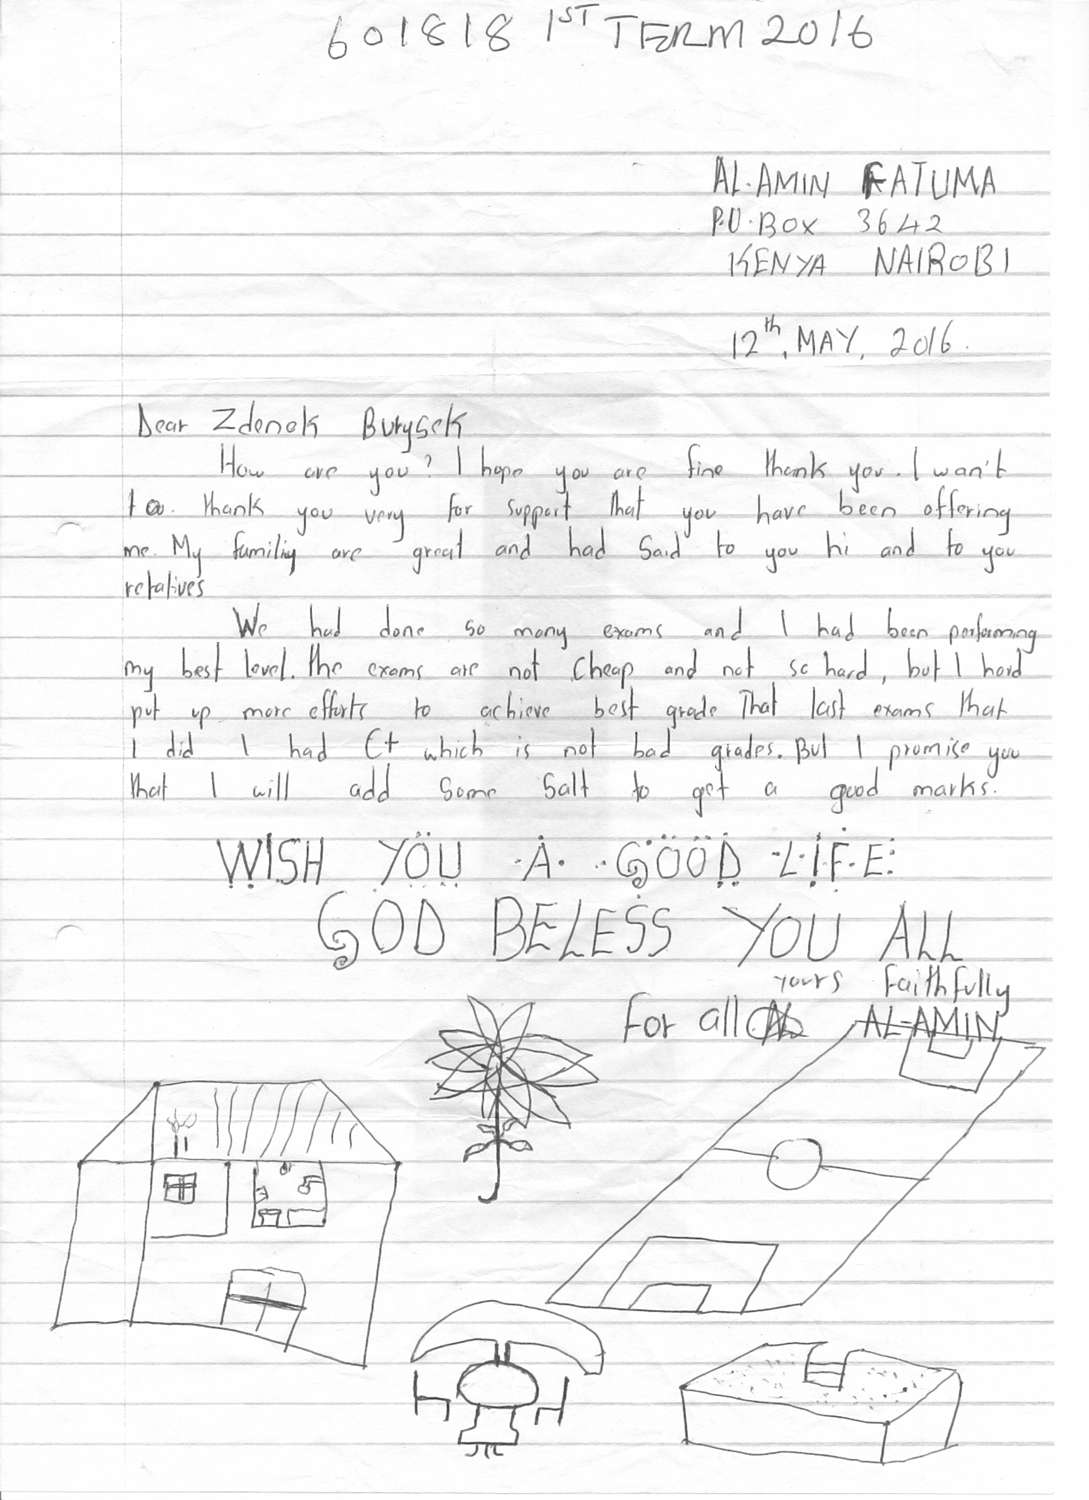 601818 1ST TERM 2016
AL-AMIN FATUMA
P.O.BOX 3642
KENYA NAIROBI
12th, MAY, 2016.
Dear Zdenek Burysek
How are you? I hope you are fine thank you. I wan't
to. thank you very for support that you have been offering
me. My familiy are great and had said to you hi and to you
relatives
We had done so many exams and I had been performing
my best level. the exams are not cheap and not so hard, but I hard
put up more efforts to achieve best grade That last exams that
I did I had C+ which is not bad grades. But I promise you
that I will add some salt to get a good marks.
WISH YOU A GOOD LIFE
GOD BELESS YOU ALL
yours faithfully
For all AL-AMIN